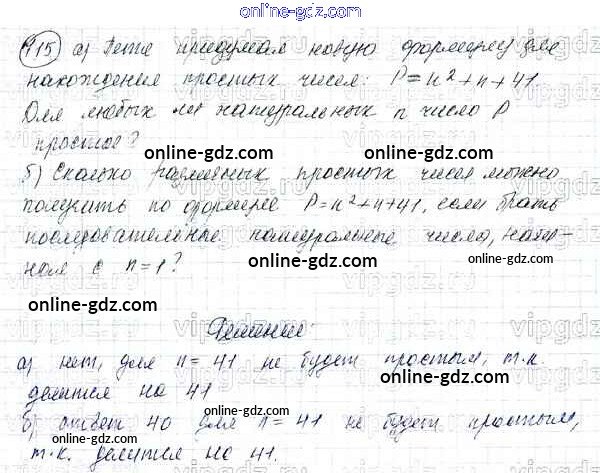 online-gdz.com
915) а) Петя придумал новую формулу для
нахождения простых чисел: P = n² + n + 41
Для любых ли натуральных n число P
простое?
online-gdz.com online-gdz.com
б) Сколько различных простых чисел можно
получить по формуле P = n² + n + 41, если брать
последовательные натуральные числа, начи-
ная с n = 1?
online-gdz.com
online-gdz.com
Решение:
online-gdz.com
а) нет, для n = 41 не будет простым, т.к.
делится на 41
online-gdz.com
б) ответ 40 для n = 41 не будет простым,
online-gdz.com
т.к. делится на 41.
online-gdz.com